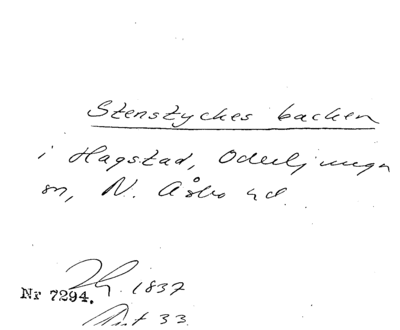 Stenstyckes backen
i Hagstad, Oderljunga
sn, N. Åsbo hd.
1837
Nr 7294.
Art 33